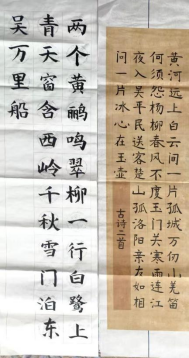 黄河远上白云间一片孤城万仞山羌笛
何须怨杨柳春风不度玉门关寒雨连江
夜入吴平民送客楚山孤洛阳亲友如相
问一片冰心在玉壶
古诗二首
两个黄鹂鸣翠柳一行白鹭上
青天窗含西岭千秋雪门泊东
吴万里船